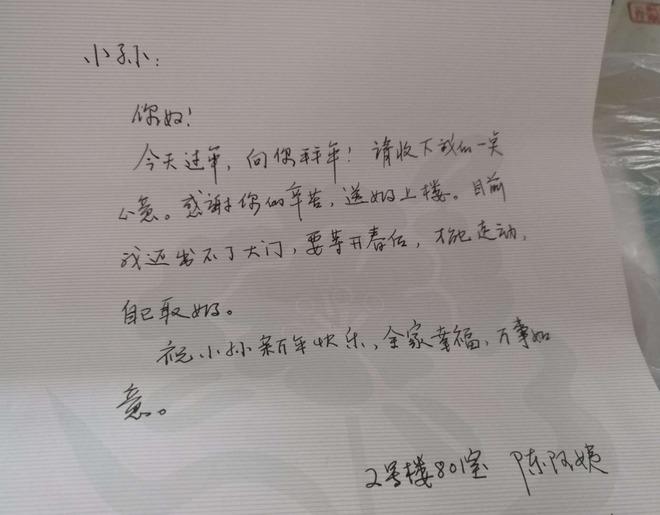 小孙：
你好！
今天过年，向你拜年！请收下我的一点
心意。感谢你的辛苦，送奶上楼。目前
我迈出不了大门，要等开春后，才能走动，
自已取奶。
祝小孙新年快乐，全家幸福、万事如
意。
2号楼801室 陈阿姨